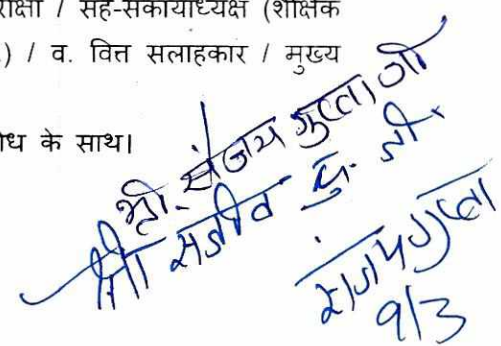 रीक्षा / सह-संकायाध्यक्ष (शैक्षिक
.) / व. वित्त सलाहकार / मुख्य
ोध के साथ।
श्री. संजय गुप्ता जी
श्री संजीव कु. जी
संजय गुप्ता
9/3